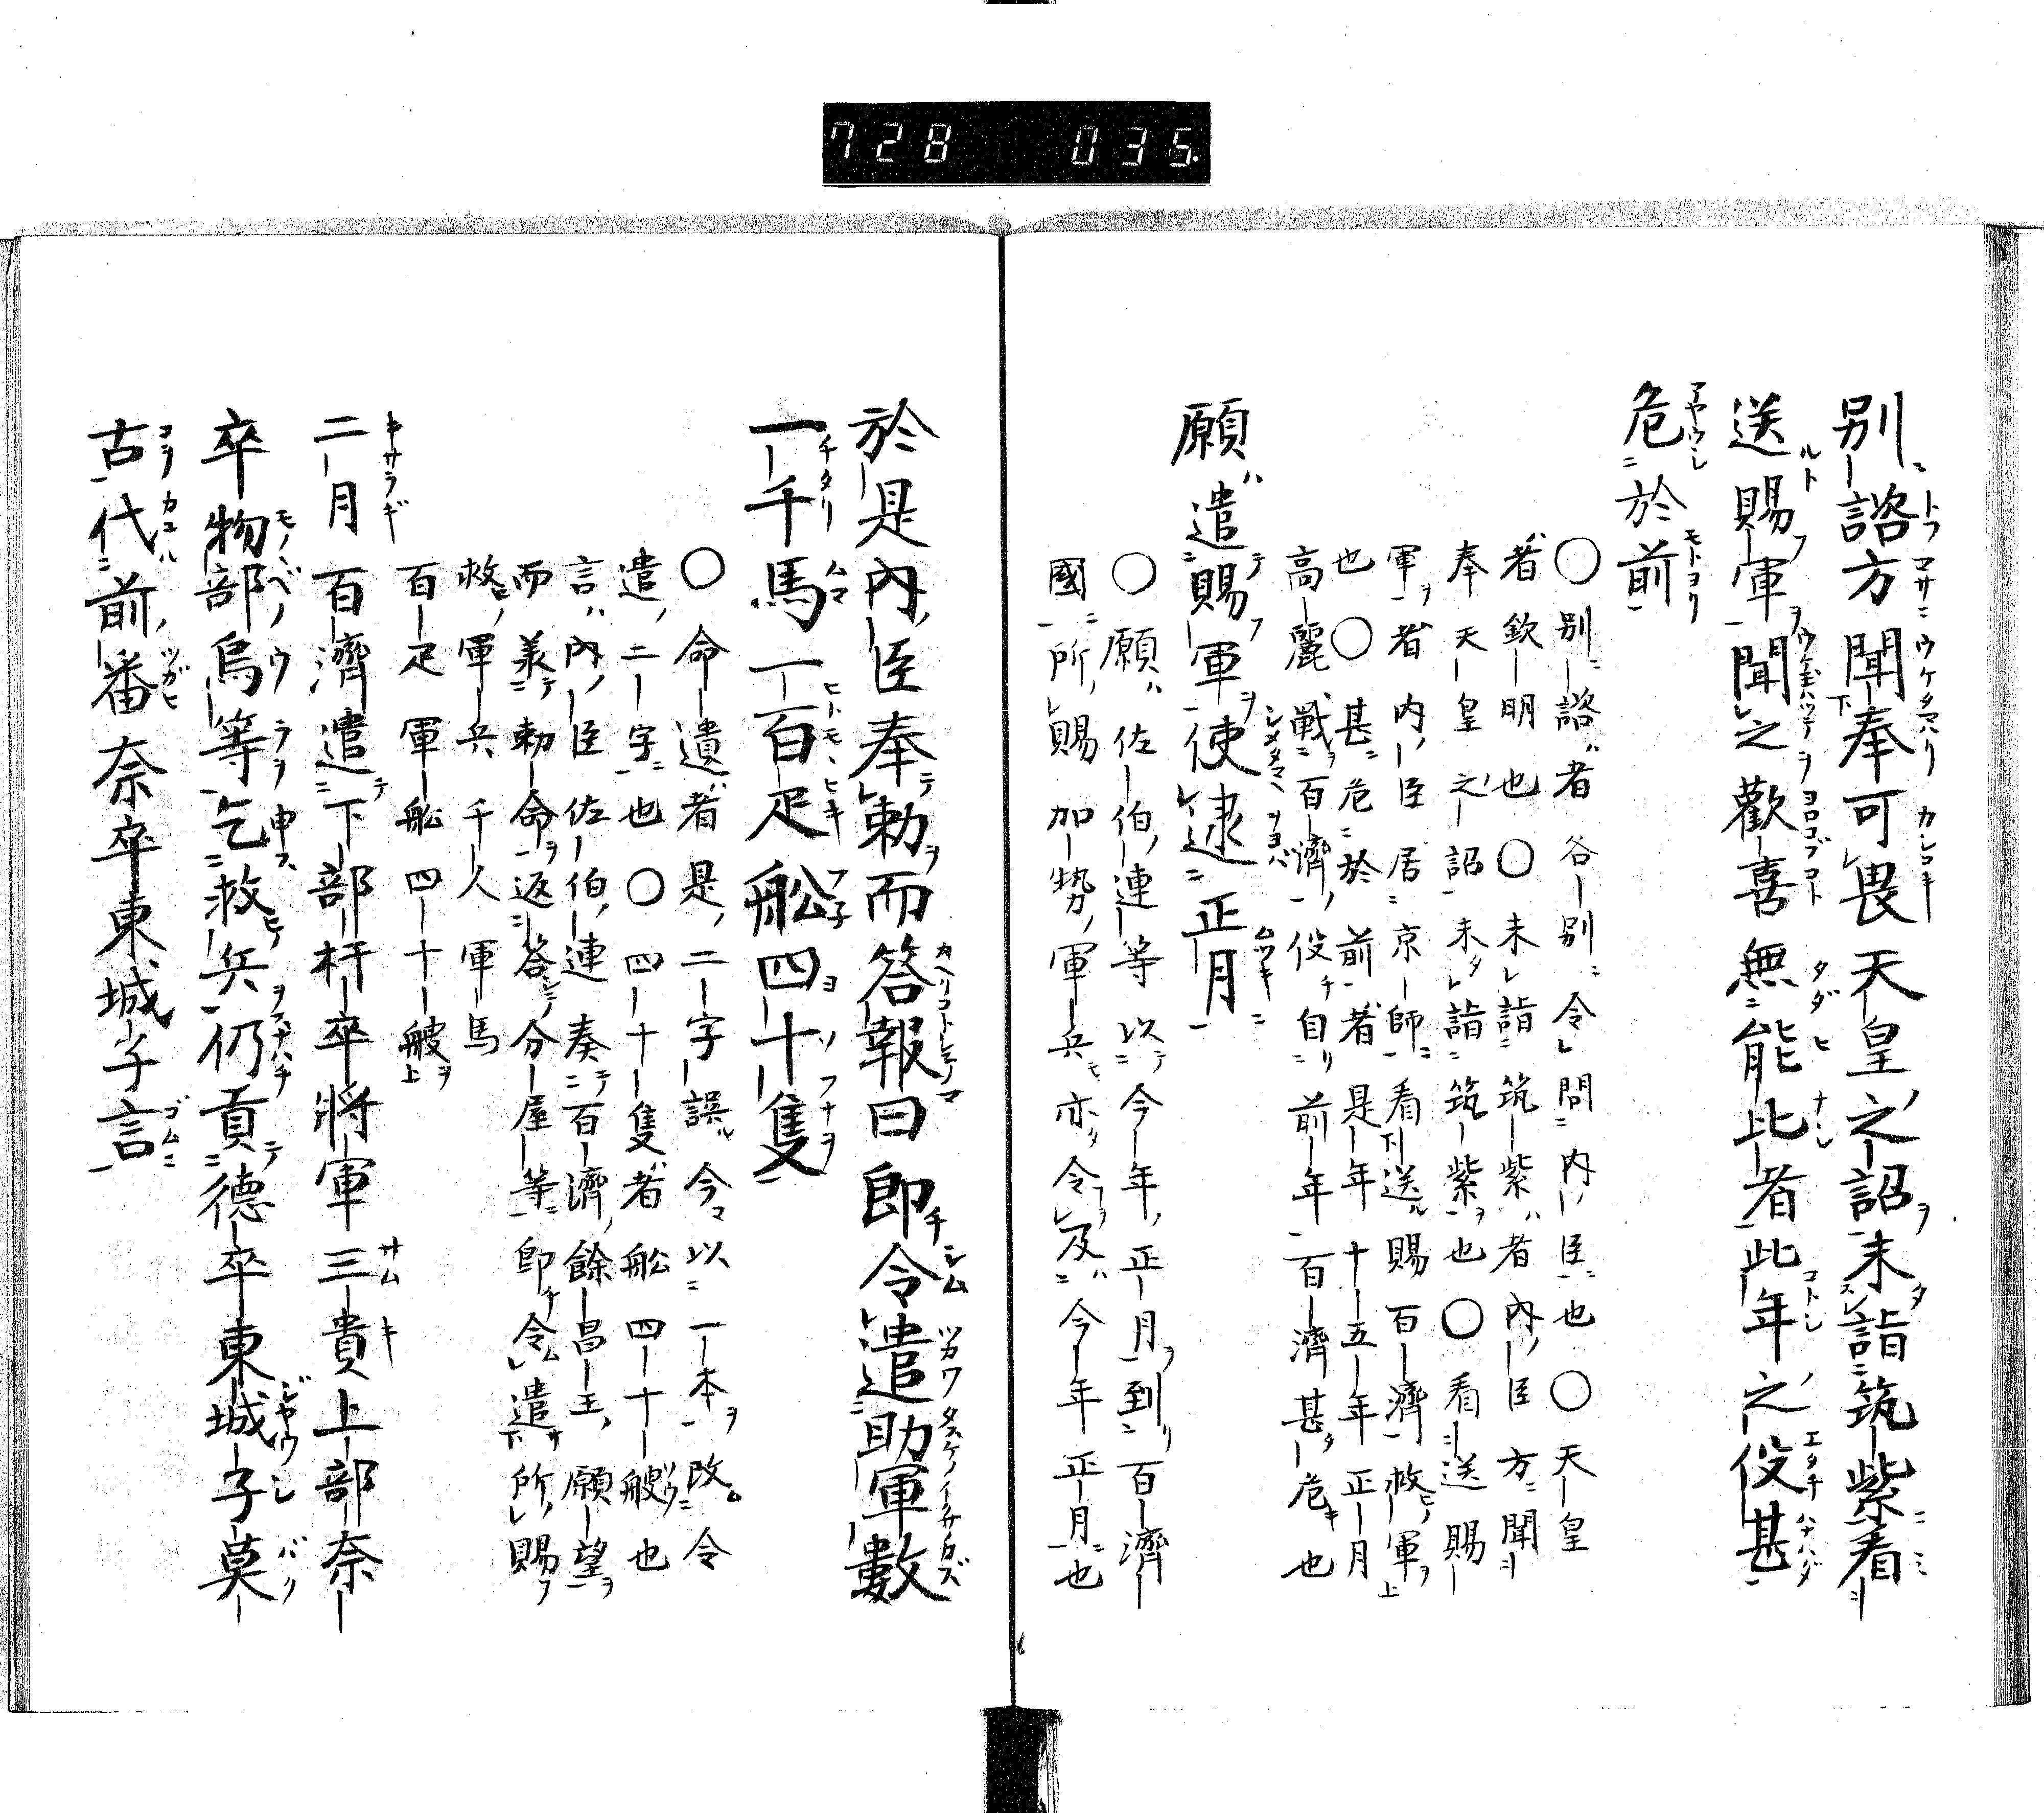 728 035
別諮方聞奉可畏天皇之詔未詣筑紫看
送賜軍聞之歡喜無能比者此年之役甚
危於前
○別諮者各別令問内臣也○天皇
者欽明也○未詣筑紫者內臣方聞
奉天皇之詔未詣筑紫也○看送賜
軍者内臣居京師看送賜百濟救軍
也○甚危於前者是年十五年正月
高麗戰百濟役自前年百濟甚危也
願遣賜軍使逮正月
○願佐伯連等以今年正月到百濟
國所賜加勢軍兵亦令及今年正月也
於是內臣奉勅而答報曰即令遣助軍數
一千馬一百疋舩四十隻
○命遺者是二字誤今以一本改令
遣二字也○四十隻者舩四十艘也
言內臣佐伯連奏百濟餘昌王願望
而羕勅命返答分屋等即令遣所賜
救軍兵千人軍馬
百疋軍舩四十艘
二月百濟遣下部杆卒將軍三貴上部奈
卒物部烏等乞救兵仍貢德卒東城子莫
古代前番奈卒東城子言